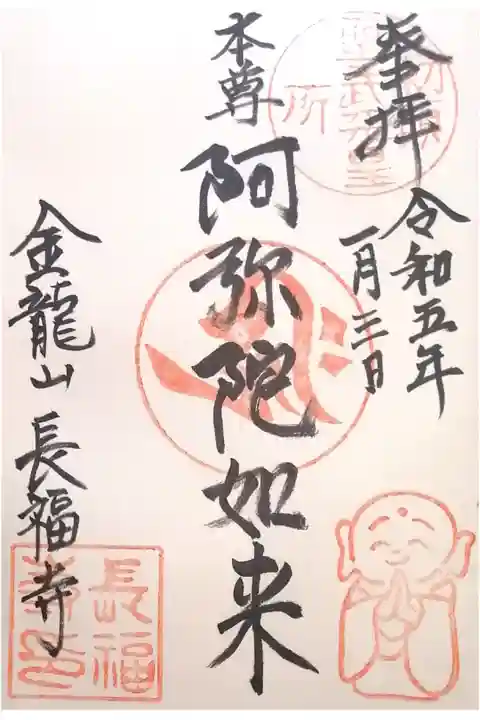 奉拝
令和五年
一月三日
本尊
阿弥陀如来
金龍山 長福寺
長福
寺印